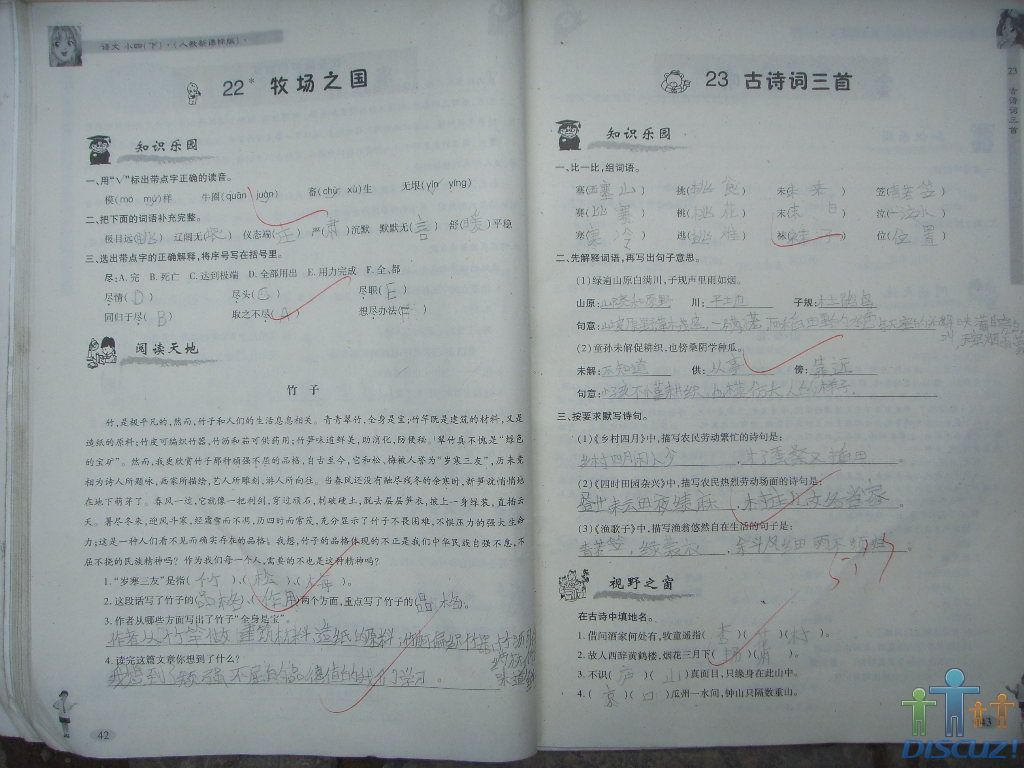 语文 小四(下)·(人教新课标版)·
22* 牧场之国
知识乐园
一、用“√”标出带点字正确的读音。
模(mó mú)样 牛圈(quān juàn) 畜(chù xù)生 无垠(yín yíng)
二、把下面的词语补充完整。
极目远(眺) 辽阔无(垠) 仪态端(庄) 严(肃)沉默 默默无(言) 舒(缓)平稳
三、选出带点字的正确解释,将序号写在括号里。
尽:A.完 B.死亡 C.达到极端 D.全部用出 E.用力完成 F.全、都
尽情(D) 尽头(C) 尽职(E)
同归于尽(B) 取之不尽(A) 想尽办法(F)
阅读天地
竹子
竹,是极平凡的,然而,竹子和人们的生活息息相关。青青翠竹,全身是宝;竹竿既是建筑的材料,又是
造纸的原料;竹皮可编织竹器,竹沥和茹可供药用;竹笋味道鲜美,助消化,防便秘。翠竹真不愧是“绿色
的宝矿”。然而,我更欣赏竹子那种顽强不屈的品格,自古至今,它和松、梅被人誉为“岁寒三友”,历来竟
相为诗人所题咏,画家所描绘,艺人所雕刻,游人所向往。当春风还没有融尽残冬的余寒时,新笋就悄悄地
在地下萌芽了。春风一过,它就像一把利剑,穿过顽石,刺破硬土,脱去层层笋衣,披上一身绿装,直插云
天。暑尽冬来,迎风斗寒,经霜雪而不凋,历四时而常茂,充分显示了竹子不畏困难,不惧压力的强大生命
力;这是一种人们看不见而确实存在的品格;我想,竹子的品格体现的不正是我们中华民族自强不息,不
屈不挠的民族精神吗?作为我们每一个人,需要的不也是这种精神吗?
1.“岁寒三友”是指(竹)、(松)、(梅)。
2.这段话写了竹子的(品格)、(作用)两个方面,重点写了竹子的(品格)。
3.作者从哪些方面写出了竹子“全身是宝”。
作者从竹竿做建筑材料造纸的原料
4.读完这篇文章你想到了什么?
我想到顽强不屈的品德值的我们学习。
42
23 古诗词三首
知识乐园
一、比一比,组词语。
塞(塞山) 挑(挑食) 未(未来) 笠(箬笠)
赛(比赛) 桃(桃花) 末(末日) 泣()
寒(寒冷) 逃(逃难) 袜(袜子) 位(位置)
二、先解释词语,再写出句子意思。
(1)绿遍山原白满川,子规声里雨如烟。
山原:山陵和原野 川:平地 子规:杜鹃鸟
句意:
(2)童孙未解供耕织,也傍桑阴学种瓜。
未解:不知道 供:从事 傍:靠近
句意:小孩不懂耕织
三、按要求默写诗句。
(1)《乡村四月》中,描写农民劳动繁忙的诗句是:
乡村四月闲人少,才了蚕桑又插田。
(2)《四时田园杂兴》中,描写农民热烈劳动场面的诗句是:
昼出耘田夜绩麻,村庄儿女各当家。
(3)《渔歌子》中,描写渔翁悠然自在生活的句子是:
青箬笠,绿蓑衣,斜风细雨不须归。
视野之窗
在古诗中填地名。
1.借问酒家何处有,牧童遥指(杏)(花)(村)。
2.故人西辞黄鹤楼,烟花三月下(扬)(州)。
3.不识(庐)(山)真面目,只缘身在此山中。
4.(京)(口)瓜州一水间,钟山只隔数重山。
43
23 古诗词三首
DISCUZ!